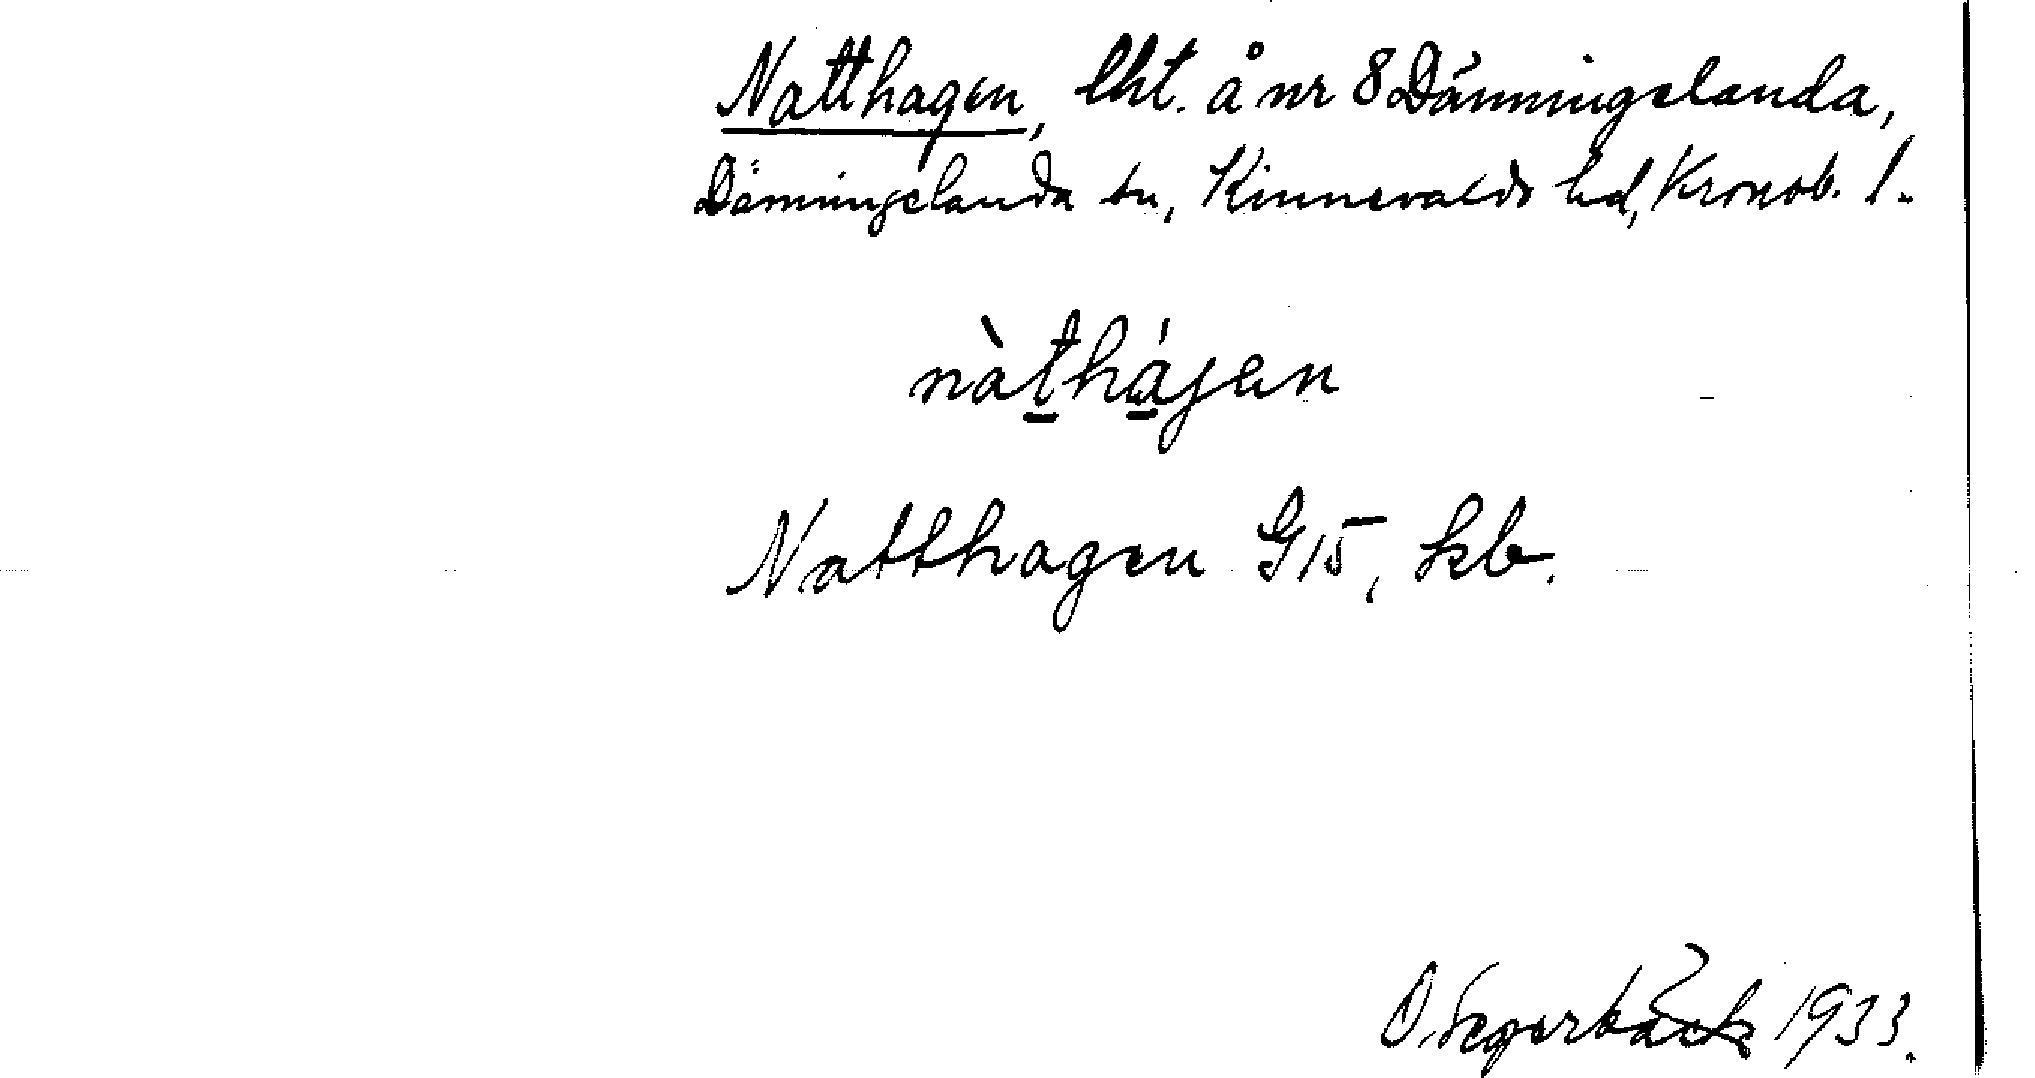 Natthagen, lht. å nr 8 Dänningelanda,
Dänningelanda sn, Kinnevalds hd, Kronob. l.
nàt̠há̠gen
Natthagen G15, kb.
O. Segerbäck 1933.